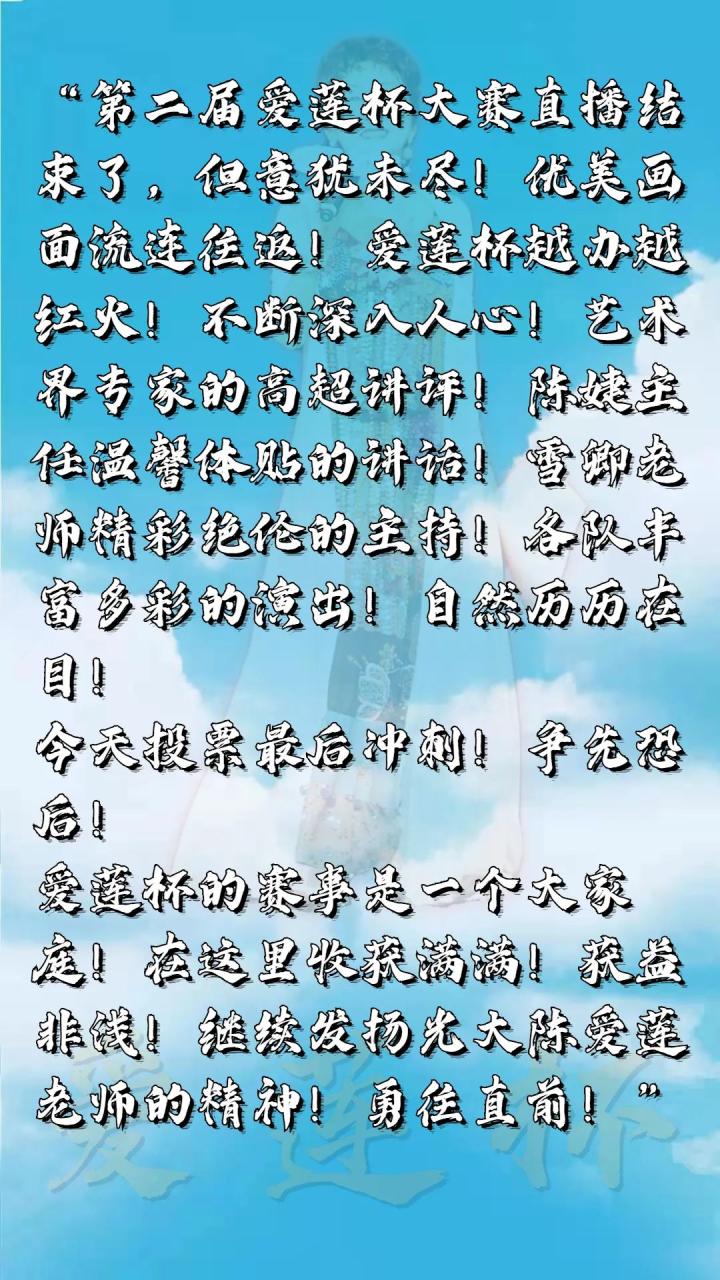 “第二届爱莲杯大赛直播结
束了，但意犹未尽！优美画
面流连往返！爱莲杯越办越
红火！不断深入人心！艺术
界专家的高超讲评！陈婕主
任温馨体贴的讲话！雪卿老
师精彩绝伦的主持！各队丰
富多彩的演出！自然历历在
目！
今天投票最后冲刺！争先恐
后！
爱莲杯的赛事是一个大家
庭！在这里收获满满！获益
非浅！继续发扬光大陈爱莲
老师的精神！勇往直前！”
爱莲杯